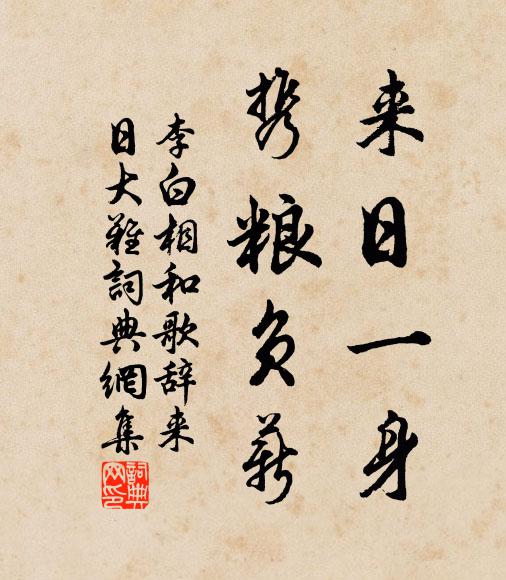 来日一身
携粮负薪
李白相和歌辞来
日大难詞典網集
詞典网印